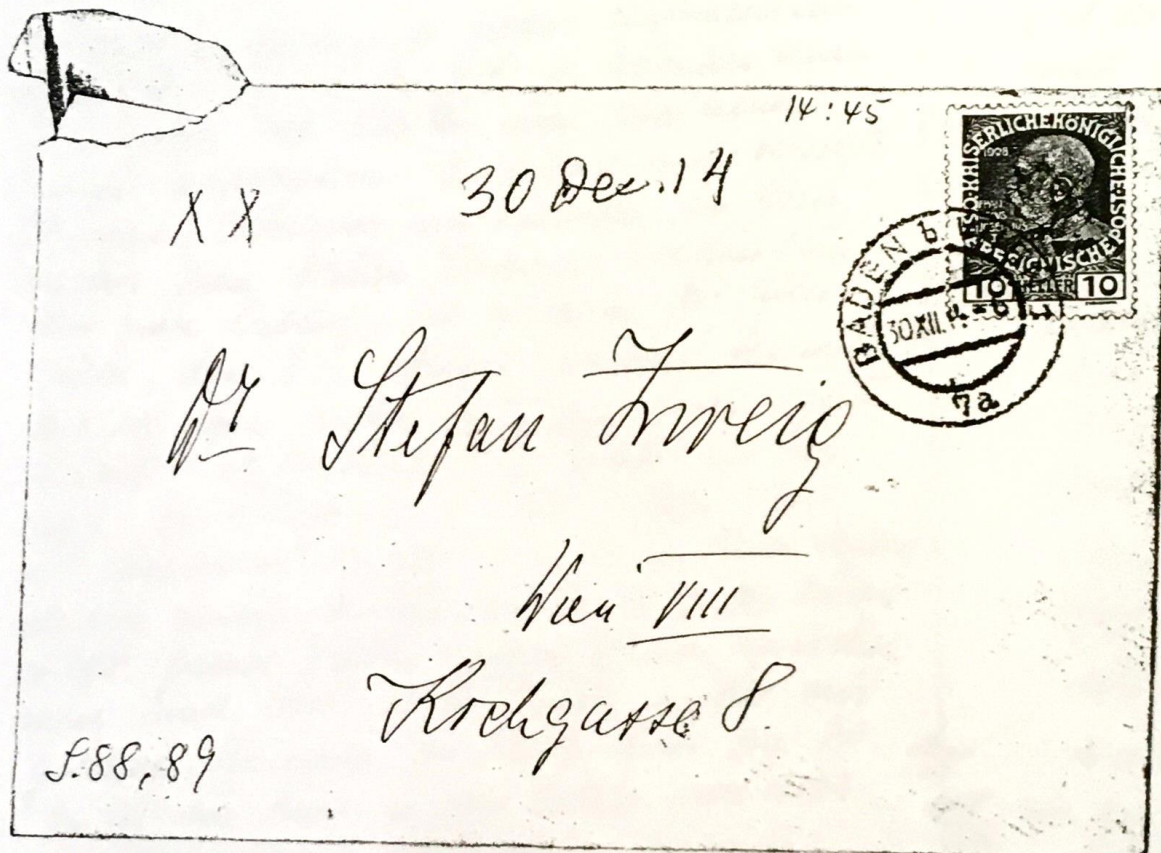 14:45
30 Dez. 14
X X
KAISERLICHE KÖNIGLICHE ÖSTERREICHISCHE POST
1908
10 HELLER 10
BADEN b.
30 XII. 1
7a
Dr Stefan Zweig
Wien VIII
Kochgasse 8
S. 88, 89